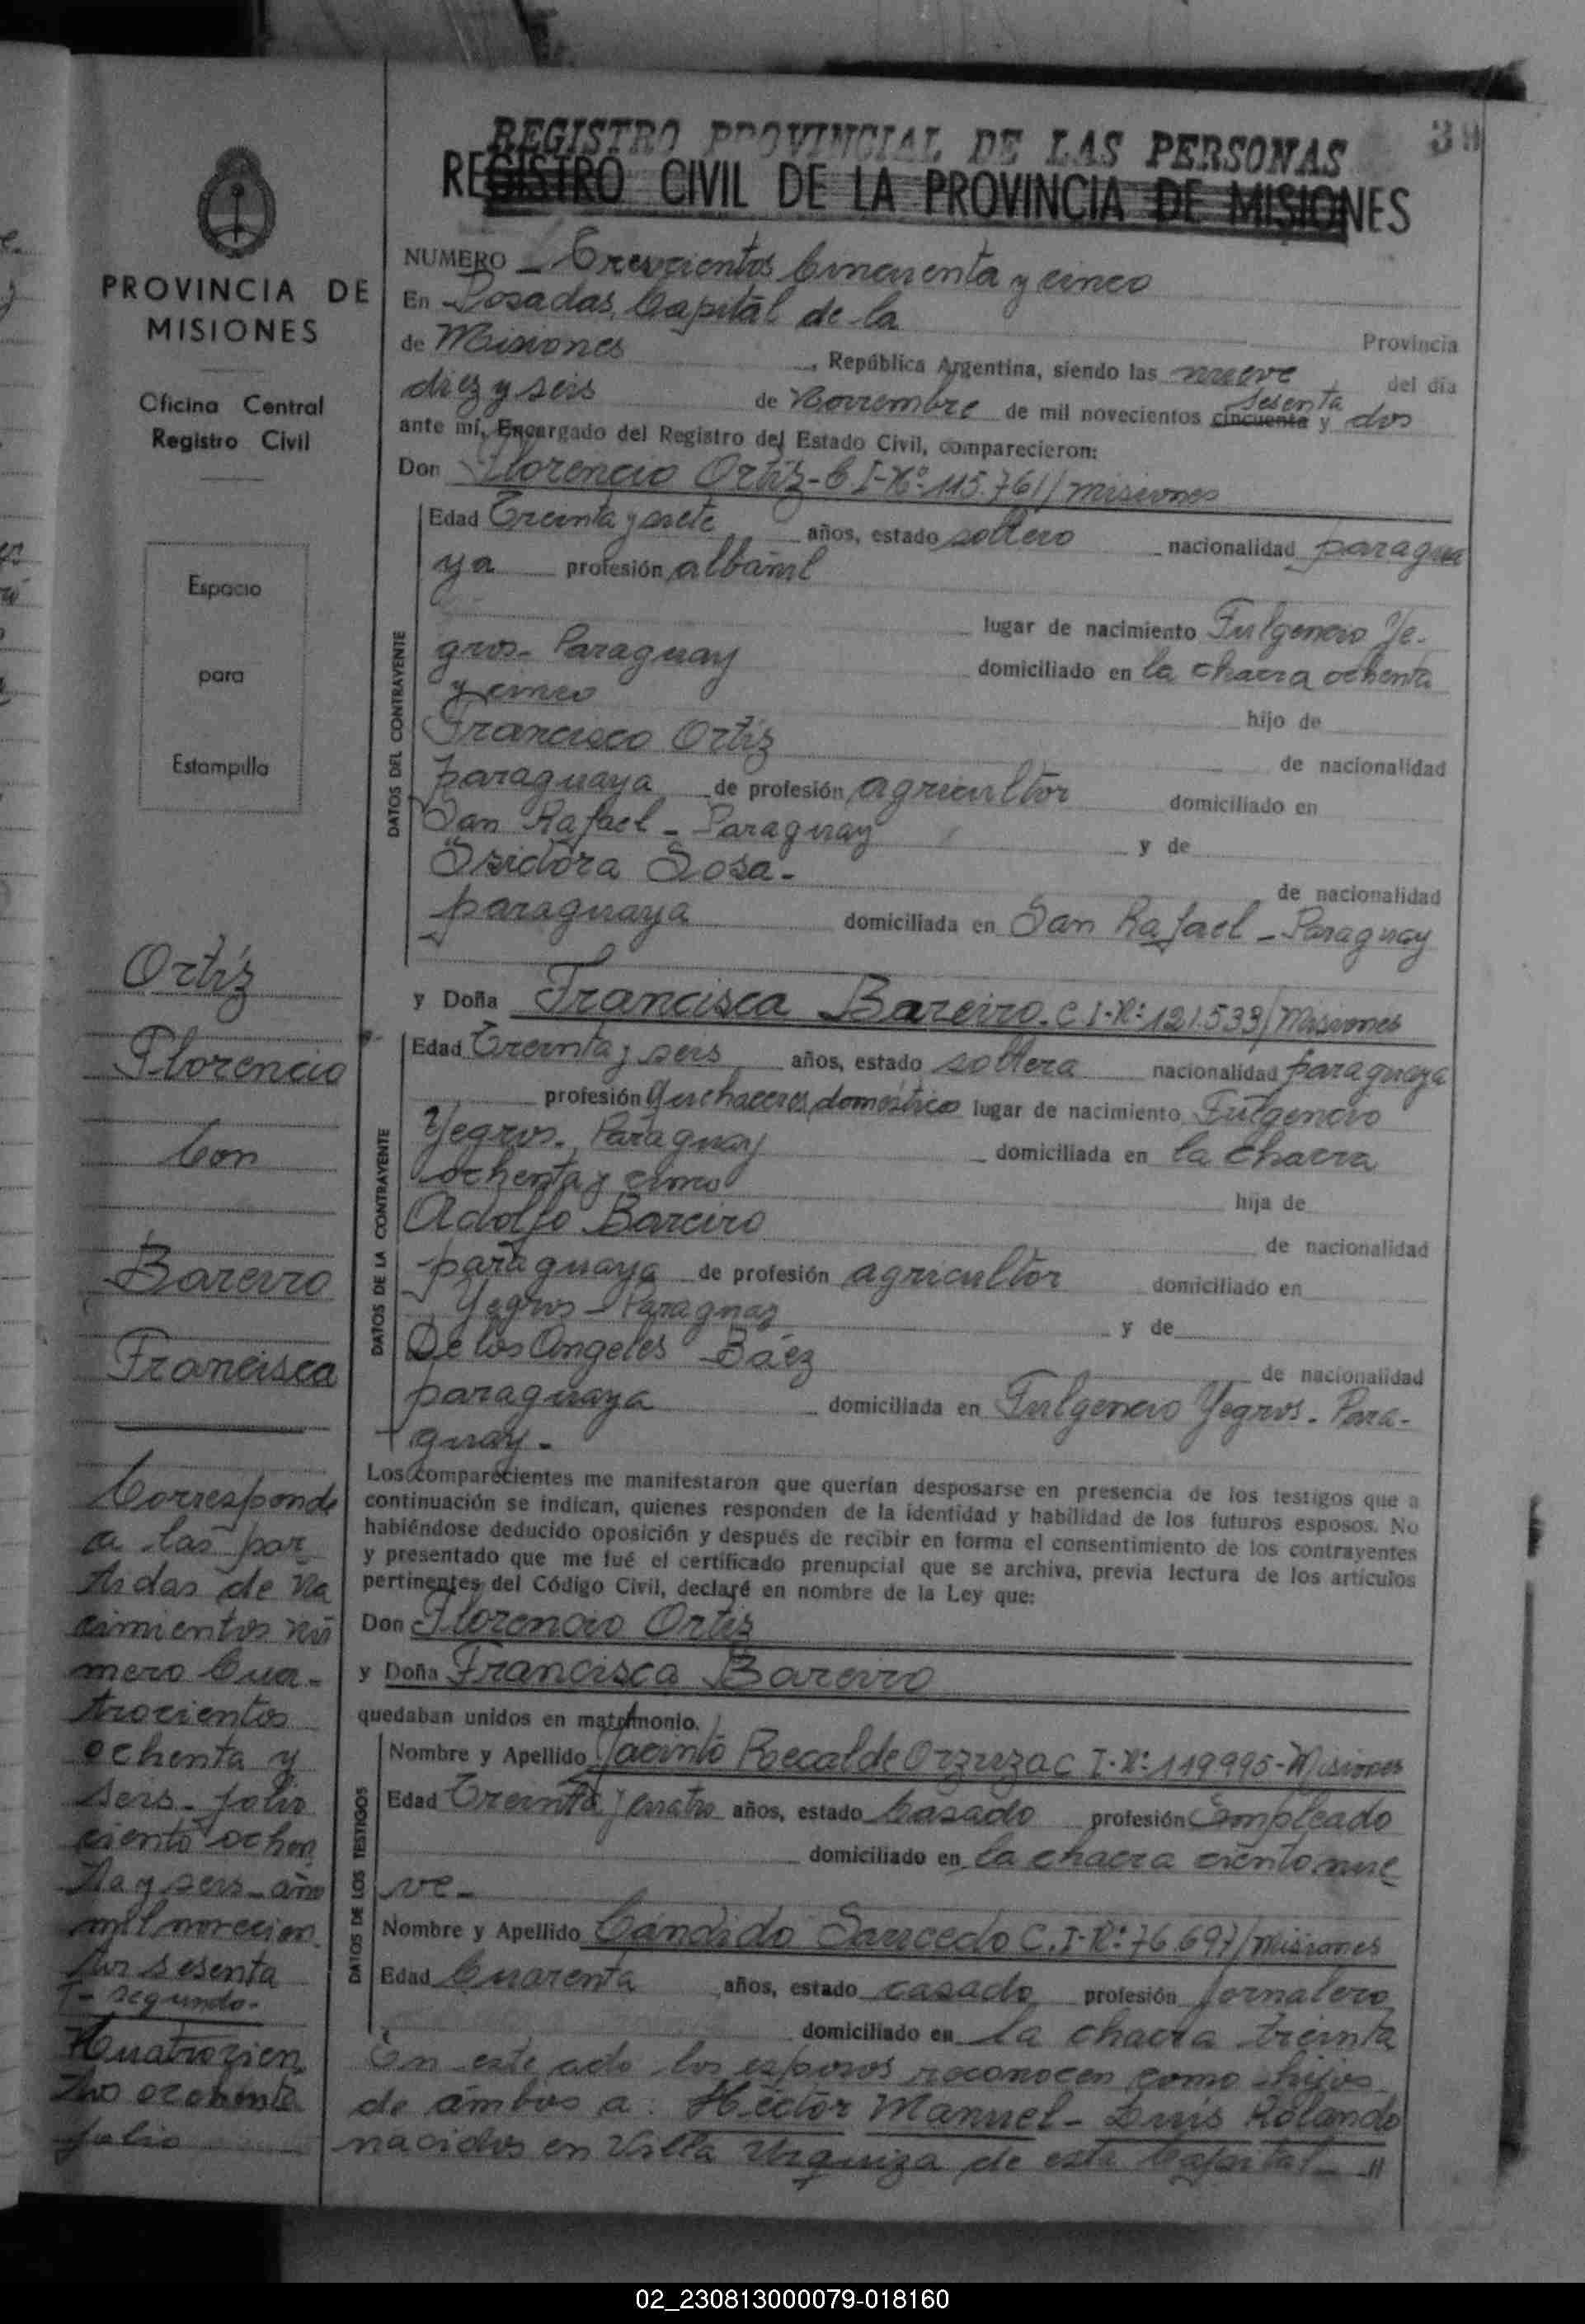 PROVINCIA DE
MISIONES
Oficina Central
Registro Civil
Espacio
para
Estampilla
Ortíz
Florencio
Con
Bareiro
Francisca
Corresponde
a las par
tidas de Na
cimientos nú
mero Cua-
trocientos
ochenta y
seis- folio
ciento ochen
ta y seis- año
mil novecien
tos sesenta
T- segundo-
Cuatrocien
tos ochenta
folio
REGISTRO PROVINCIAL DE LAS PERSONAS
39
REGISTRO CIVIL DE LA PROVINCIA DE MISIONES
NUMERO - Trescientos Cincuenta y cinco
En Posadas, Capital de la Provincia
de Misiones, República Argentina, siendo las nueve del día
diez y seis de Noviembre de mil novecientos cincuenta sesenta y dos
ante mí, Encargado del Registro del Estado Civil, comparecieron:
Don Florencio Ortíz- C I-Nº 115.761/ misiones
DATOS DEL CONTRAYENTE
Edad Treinta y siete años, estado soltero nacionalidad paragua
ya profesión albañil
lugar de nacimiento Fulgencio Ye-
gros- Paraguay domiciliado en la chacra ochenta
y cinco hijo de
Francisco Ortíz de nacionalidad
paraguaya de profesión agricultor domiciliado en
San Rafael - Paraguay y de
Isidora Sosa- de nacionalidad
paraguaya domiciliada en San Rafael - Paraguay
y Doña Francisca Bareiro. C I-Nº 121.533/ Misiones
DATOS DE LA CONTRAYENTE
Edad Treinta y seis años, estado soltera nacionalidad paraguaya
profesión Quehaceres doméstico lugar de nacimiento Fulgencio
Yegros- Paraguay domiciliada en la chacra
ochenta y cinco hija de
Adolfo Bareiro de nacionalidad
paraguaya de profesión agricultor domiciliado en
Yegros - Paraguay y de
De los Angeles Báez de nacionalidad
paraguaya domiciliada en Fulgencio Yegros- Para-
guay-
Los comparecientes me manifestaron que querían desposarse en presencia de los testigos que a
continuación se indican, quienes responden de la identidad y habilidad de los futuros esposos. No
habiéndose deducido oposición y después de recibir en forma el consentimiento de los contrayentes
y presentado que me fué el certificado prenupcial que se archiva, previa lectura de los artículos
pertinentes del Código Civil, declaré en nombre de la Ley que:
Don Florencio Ortiz
y Doña Francisca Bareiro
quedaban unidos en matrimonio.
DATOS DE LOS TESTIGOS
Nombre y Apellido Jacinto Recalde Orzuza C I-Nº 119995- Misiones
Edad Treinta y cuatro años, estado Casado profesión Empleado
domiciliado en la chacra ciento nue
ve-
Nombre y Apellido Cándido Saucedo C.I-Nº 76.697/ Misiones
Edad Cuarenta años, estado casado profesión jornalero
domiciliado en la chacra treinta
En este acto los esposos reconocen como hijos
de ámbos a: Héctor Manuel- Luis Rolando
nacidos en Villa Urquiza de esta Capital- //
02_230813000079-018160